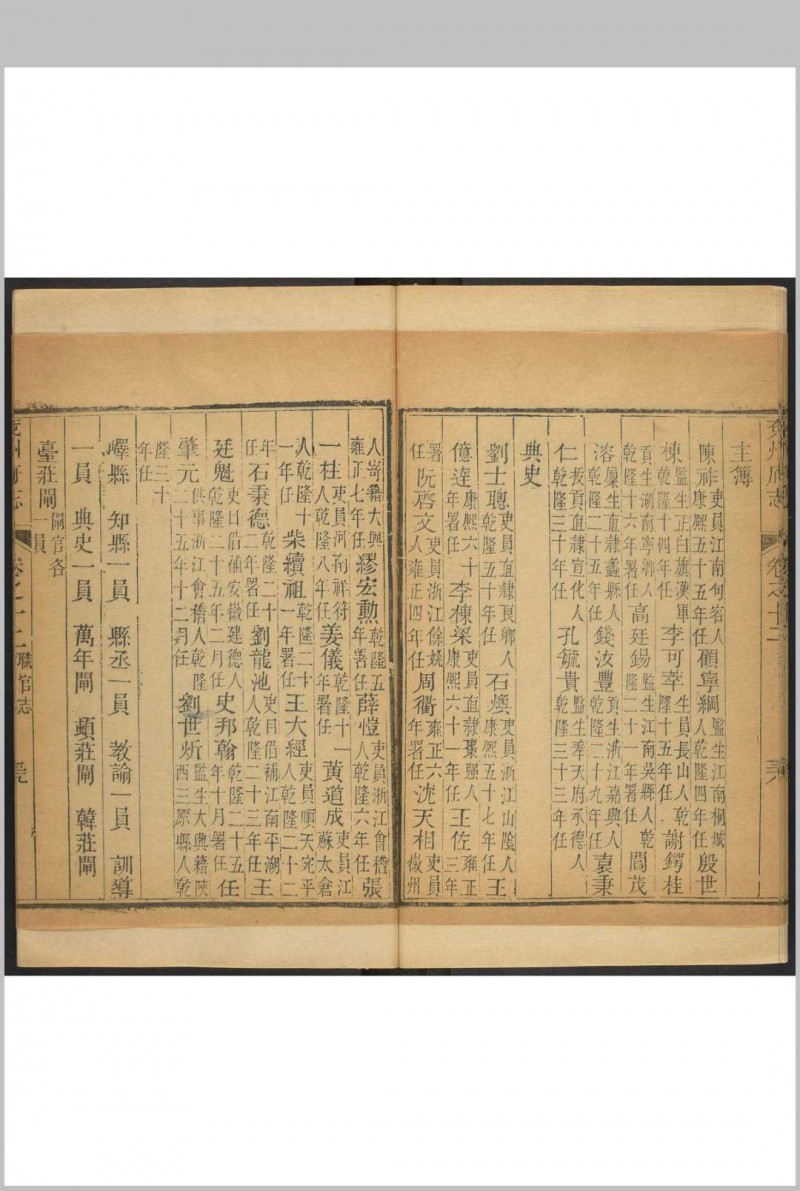 主簿
陳祚吏員江南句容人康熙五十五年任顧寧綱監生江南桐城人乾隆四年任殷世
棟監生正白旗漢軍乾隆十四年任李可莘生員長山人乾隆十五年任謝鍔桂
貢生湖南寧鄉人乾隆十六年署任高廷錫監生江南吳縣人乾隆二十一年署任閻茂
溶廩生直隸蠡縣人乾隆二十五年任錢汝豐貢生浙江嘉興人乾隆二十九年任袁秉
仁拔貢直隸宣化人乾隆三十年任孔毓貴監生奉天府承德人乾隆三十三年任
典史
劉士聰吏員直隸良鄉人康熙五十年任石爕吏員浙江山陰人康熙五十七年任王
億達康熙六十年署任李棟梁吏員直隸棗强人康熙六十一年任王佐雍正三年
署任阮啓文吏員浙江餘姚人雍正四年任周衢雍正六年署任沈天相吏員徽州
人寄籍大興雍正七年任繆宏勲乾隆五年署任薛愷吏員浙江會稽人乾隆六年任張
一柱吏員河南祥符人乾隆八年任姜儀乾隆十一年署任黃道成吏員江蘇太倉
人乾隆十一年任柴續祖乾隆二十一年署任王大經吏員順天宛平人乾隆二十二
年任石秉德乾隆二十二年署任劉龍池吏目借補江南平湖人乾隆二十三年任王
廷魁吏目借補安徽建德人乾隆二十五年二月任史邦翰乾隆二十五年十月署任任
肇元供事浙江會稽人乾隆二十五年十二月任劉世炘監生大興籍陝西三原縣人乾
隆三十年任
嶧縣 知縣一員 縣丞一員 教諭一員 訓導
一員 典史一員 萬年閘 頓莊閘 韓莊閘
臺莊閘閘官各一員
兖州府志 卷之十二職官志